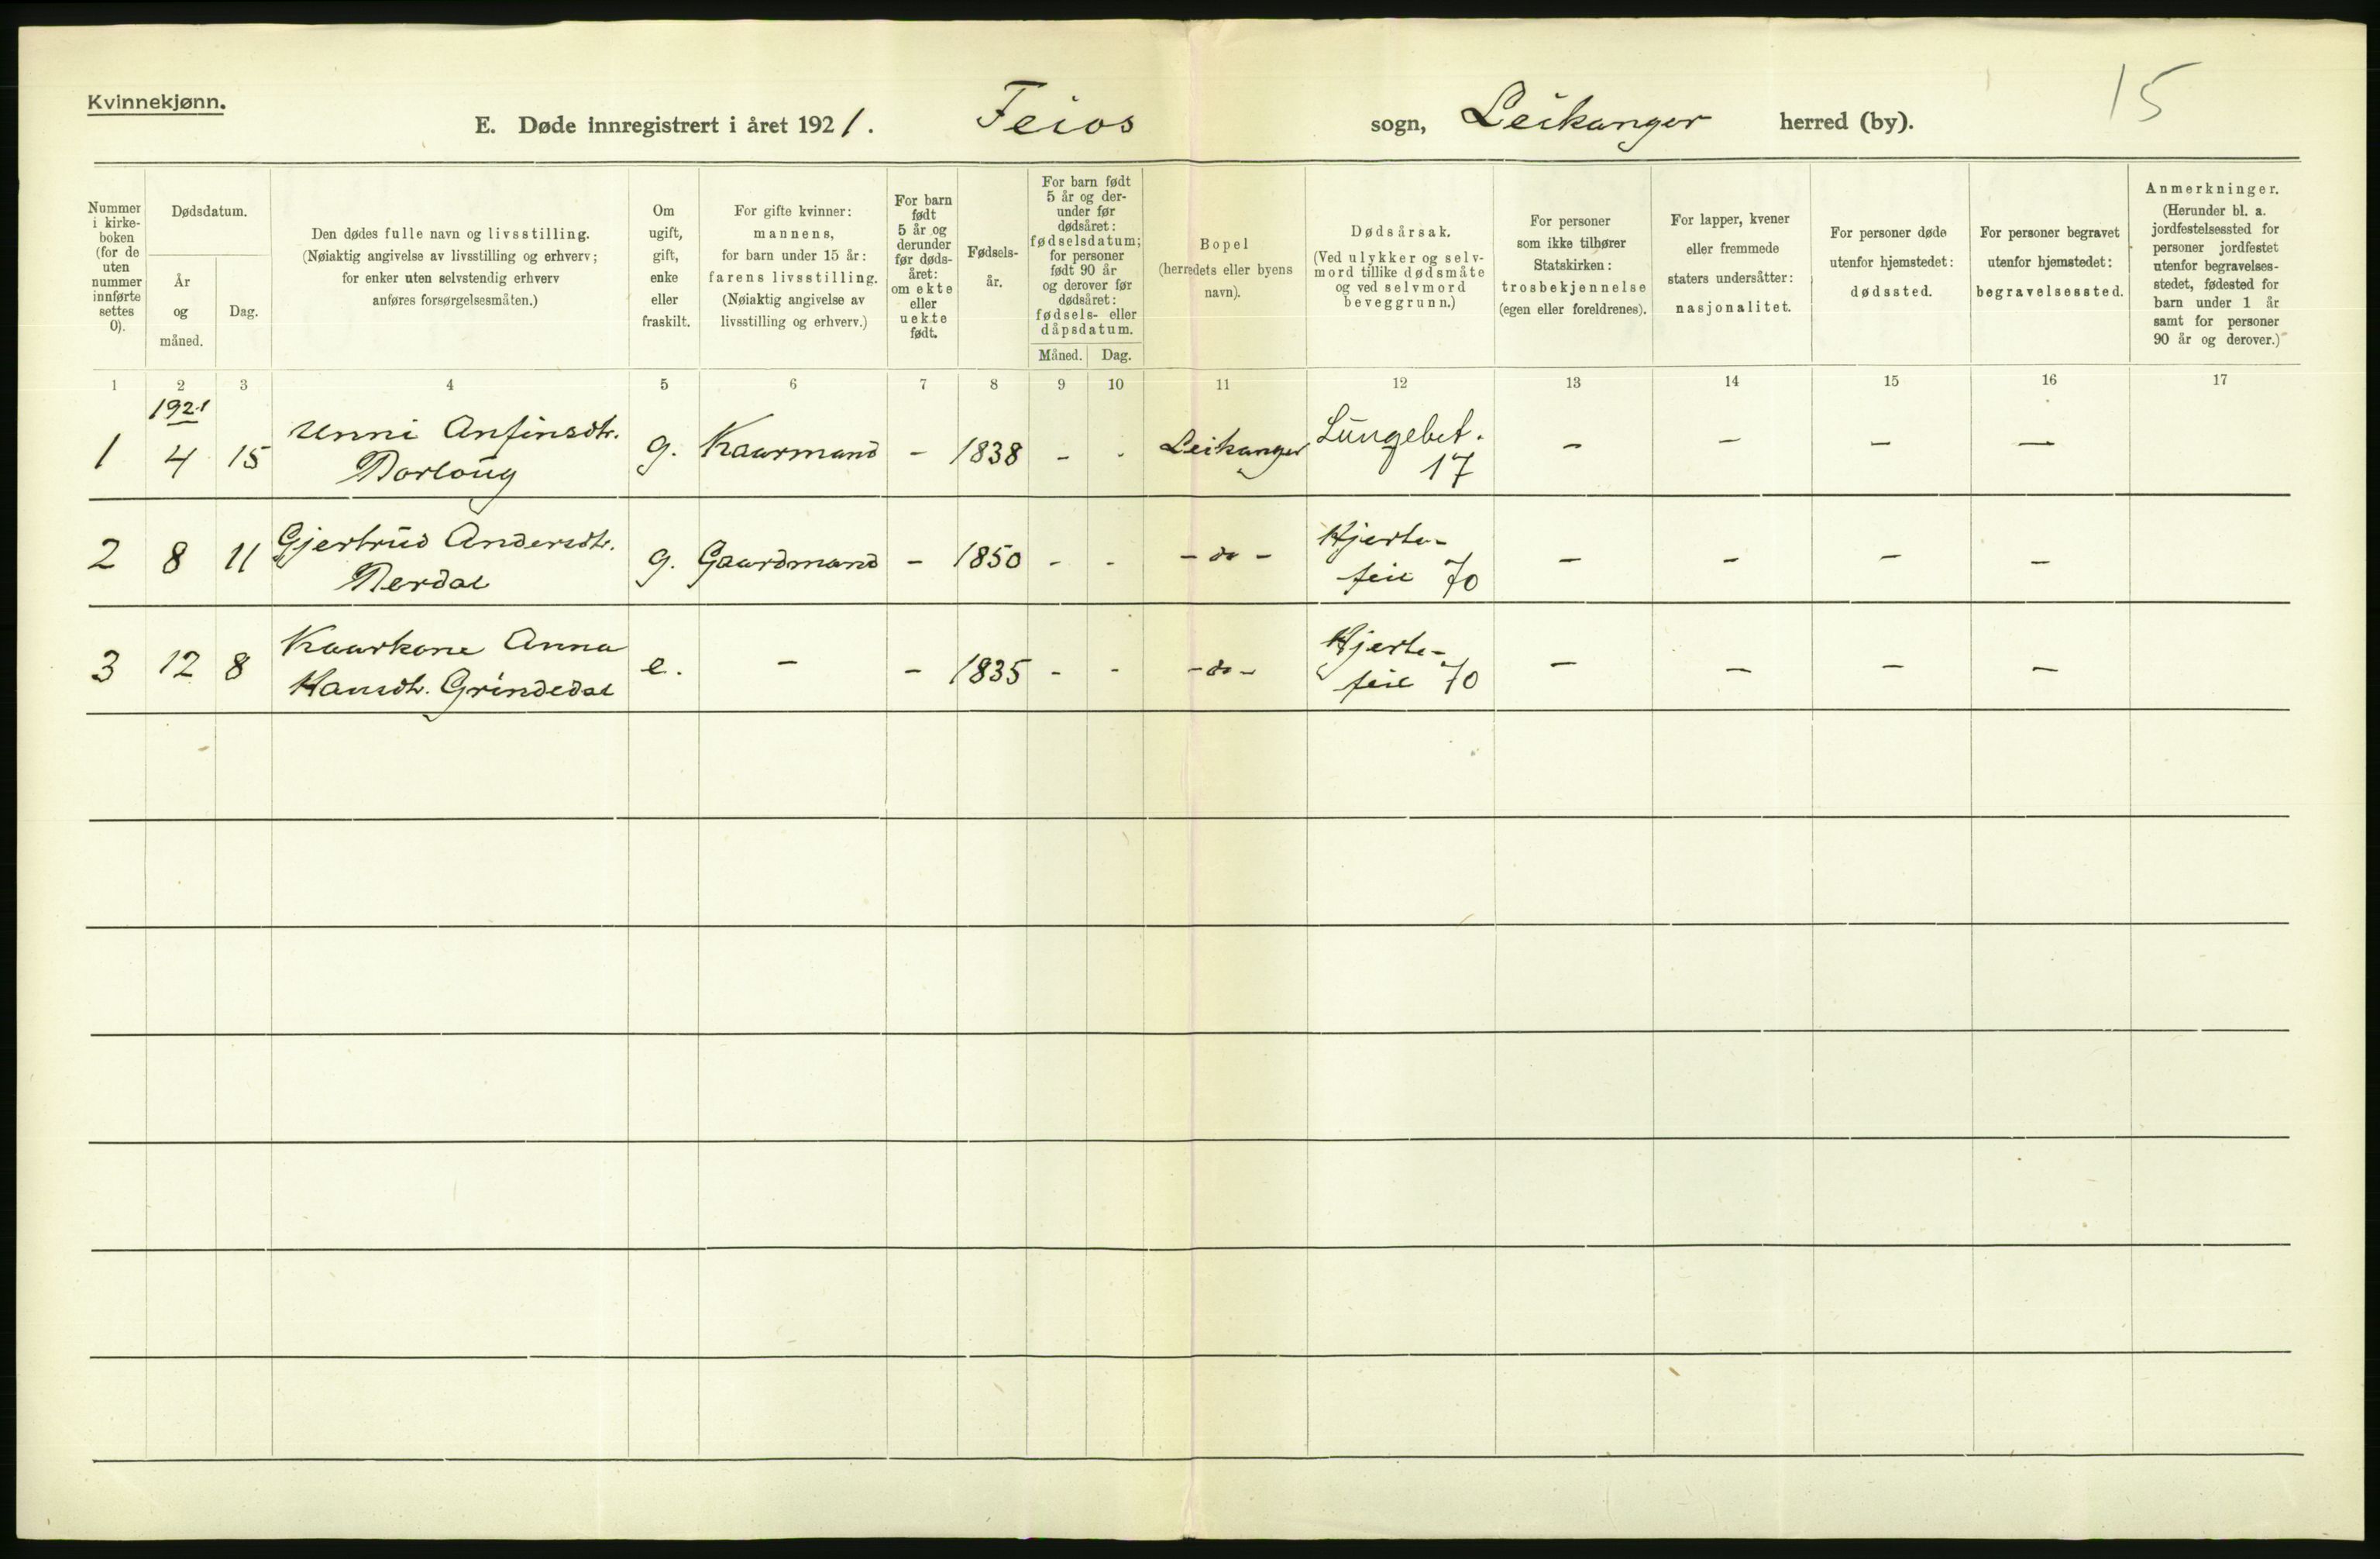 Kvinnekjønn.
15
E. Døde innregistrert i året 1921. Feios sogn, Leikanger herred (by).
Nummer i kirke-boken (for de uten nummer innførte settes 0).
Dødsdatum.
År og måned.
Dag.
Den dødes fulle navn og livsstilling.
(Nøiaktig angivelse av livsstilling og erhverv;
for enker uten selvstendig erhverv
anføres forsørgelsesmåten.)
Om
ugift,
gift,
enke
eller
fraskilt.
For gifte kvinner:
mannens,
for barn under 15 år:
farens livsstilling.
(Nøiaktig angivelse av
livsstilling og erhverv.)
For barn
født
5 år og
derunder
før døds-
året:
om ekte
eller
uekte
født.
Fødsels-
år.
For barn født
5 år og der-
under før
dødsåret:
fødselsdatum;
for personer
født 90 år
og derover før
dødsåret:
fødsels- eller
dåpsdatum.
Måned. Dag.
Bopel
(herredets eller byens
navn).
Dødsårsak.
(Ved ulykker og selv-
mord tillike dødsmåte
og ved selvmord
beveggrunn.)
For personer
som ikke tilhører
Statskirken:
trosbekjennelse
(egen eller foreldrenes).
For lapper, kvener
eller fremmede
staters undersåtter:
nasjonalitet.
For personer døde
utenfor hjemstedet:
dødssted.
For personer begravet
utenfor hjemstedet:
begravelsessted.
Anmerkninger.
(Herunder bl. a.
jordfestelsessted for
personer jordfestet
utenfor begravelses-
stedet, fødested for
barn under 1 år
samt for personer
90 år og derover.)
1 2 3 4 5 6 7 8 9 10 11 12 13 14 15 16 17
1921
1 4 15 Unni Anfinsdtr. g. Kaarmand - 1838 - - Leikanger Lungebet. - - - -
17
2 8 11 Gjertrud Andersdtr. g. Gaardmand - 1850 - - - do - Hjerte- - - - -
feil 70
3 12 8 Kaarkone Anna e. - - 1835 - - - do - Hjerte- - - - -
Hansdtr. Grindedal feil 70